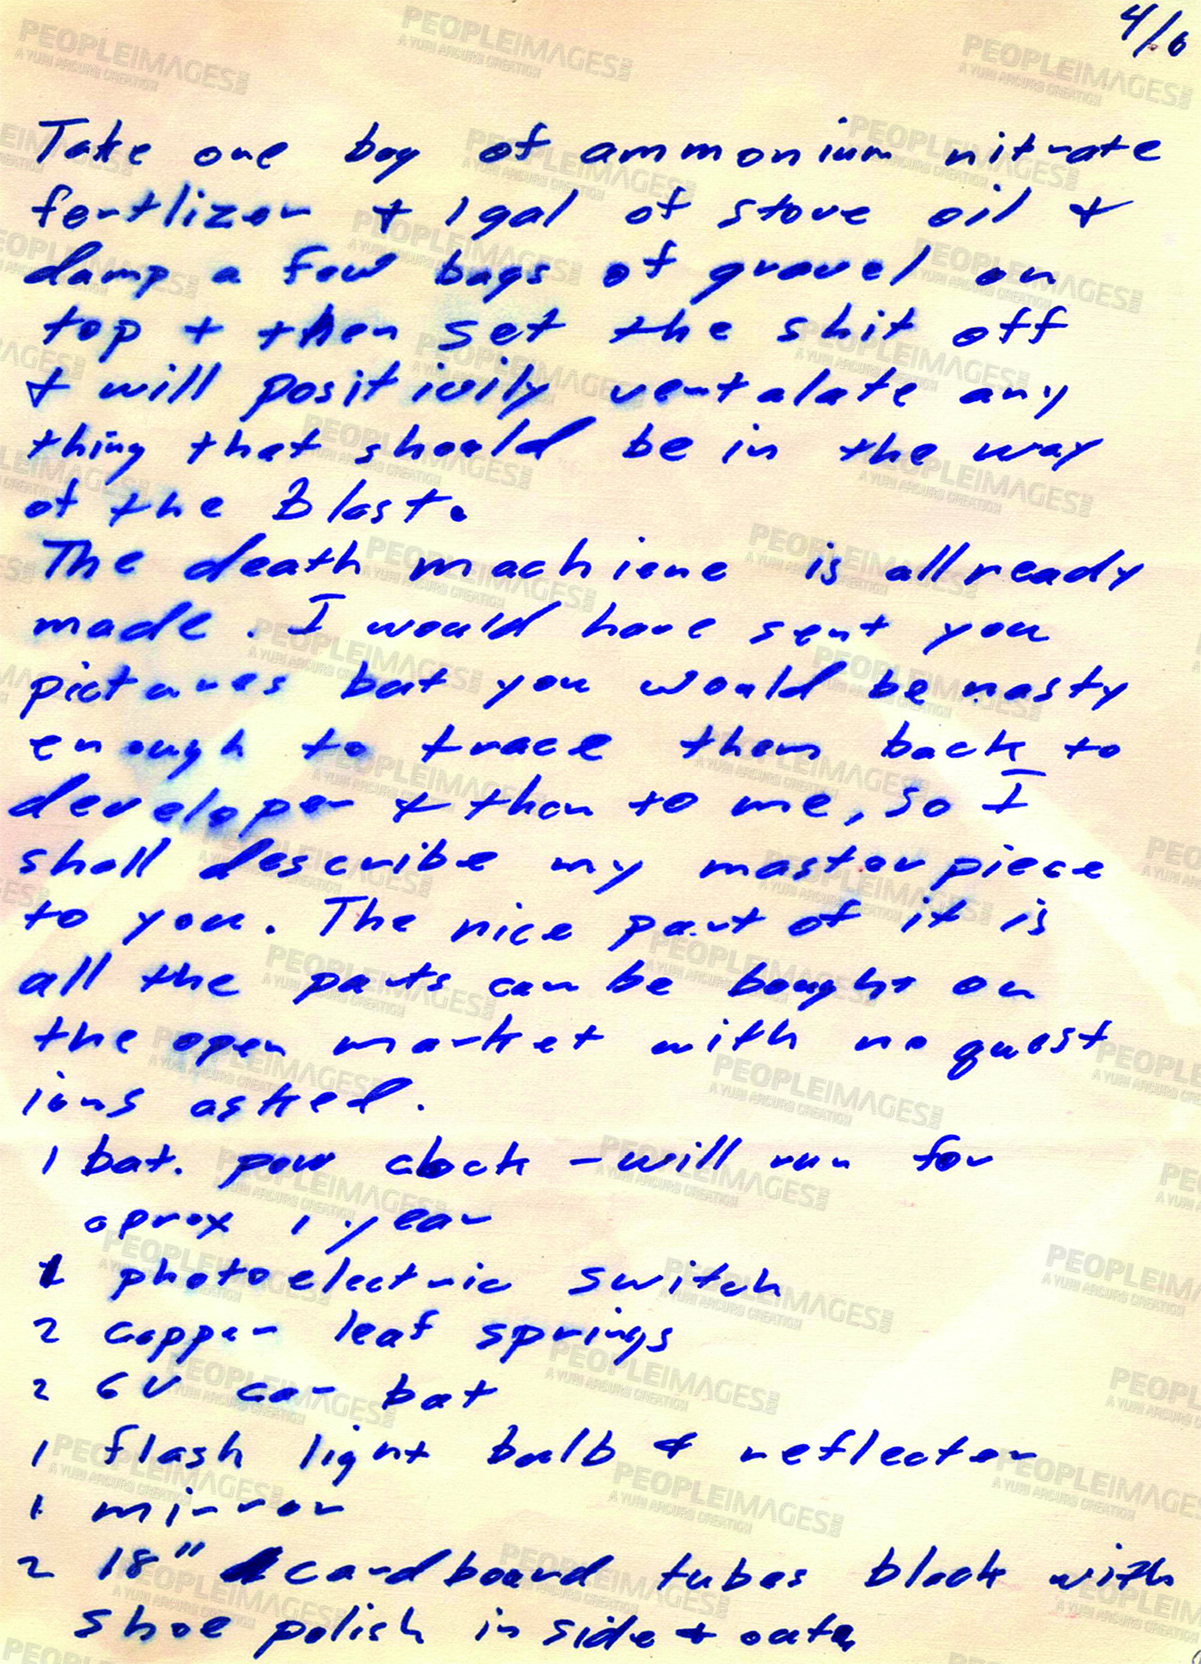 4/6
Take one bag of ammonium nitrate
fertlizer + 1 gal of stove oil &
damp a few bags of gravel on
top + then set the shit off
& will positivily ventalate any
thing that should be in the way
of the Blast.
The death machiene is allready
made. I would have sent you
pictures but you would be nasty
enough to trace them back to
developer & then to me, so I
shall describe my masterpiece
to you. The nice part of it is
all the parts can be bought on
the open market with no quest
ions asked.
1 bat. pow clock - will run for
aprox 1 year
1 photoelectric switch
2 copper leaf springs
2 6V car bat
1 flash light bulb & reflector
1 mirror
2 18" cardboard tubes black with
shoe polish in side + oute
PEOPLEIMAGES.COM
A YURI ARCURS CREATION